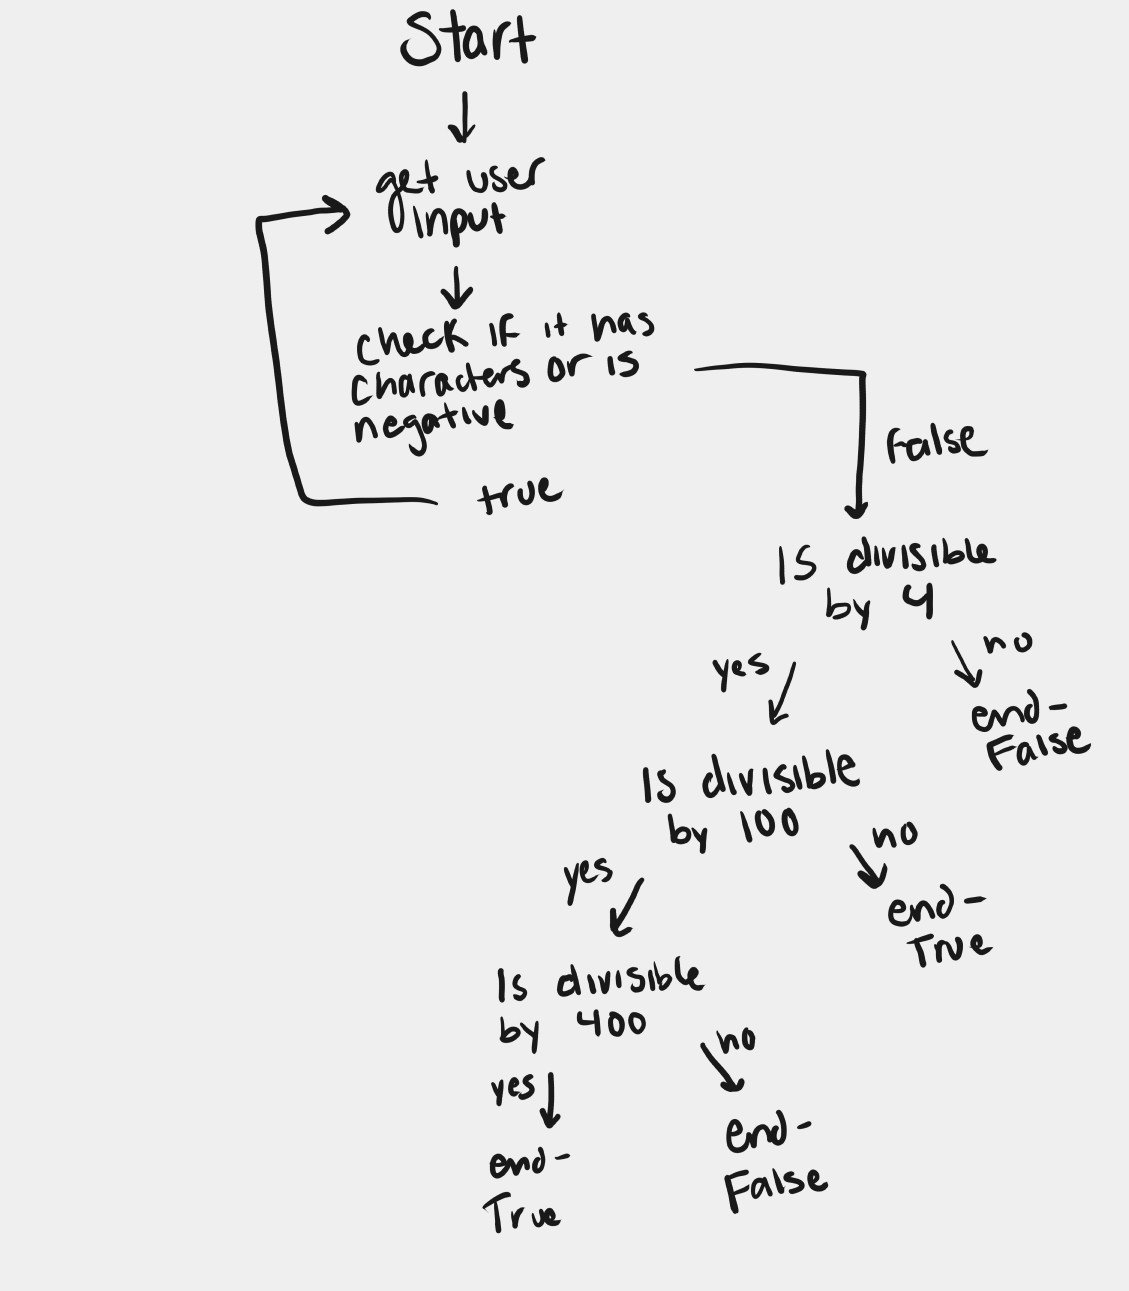 Start
get user
input
check if it has
characters or is
negative
true
False
Is divisible
by 4
yes
no
end-
False
Is divisible
by 100
yes
no
end-
True
Is divisible
by 400
yes
no
end-
True
end-
False